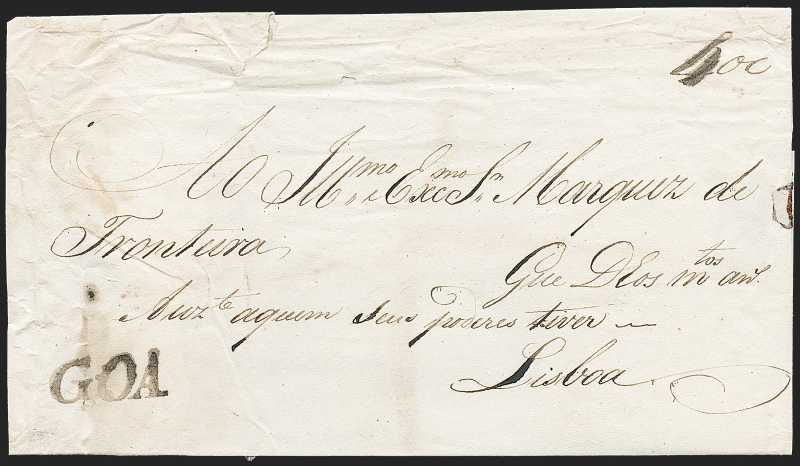 400
Ao Illmo e Exmo Snr Marquez de
Fronteira
Gue Deos mtos ans
Auzte aquem seus poderes tiver
Lisboa
GOA